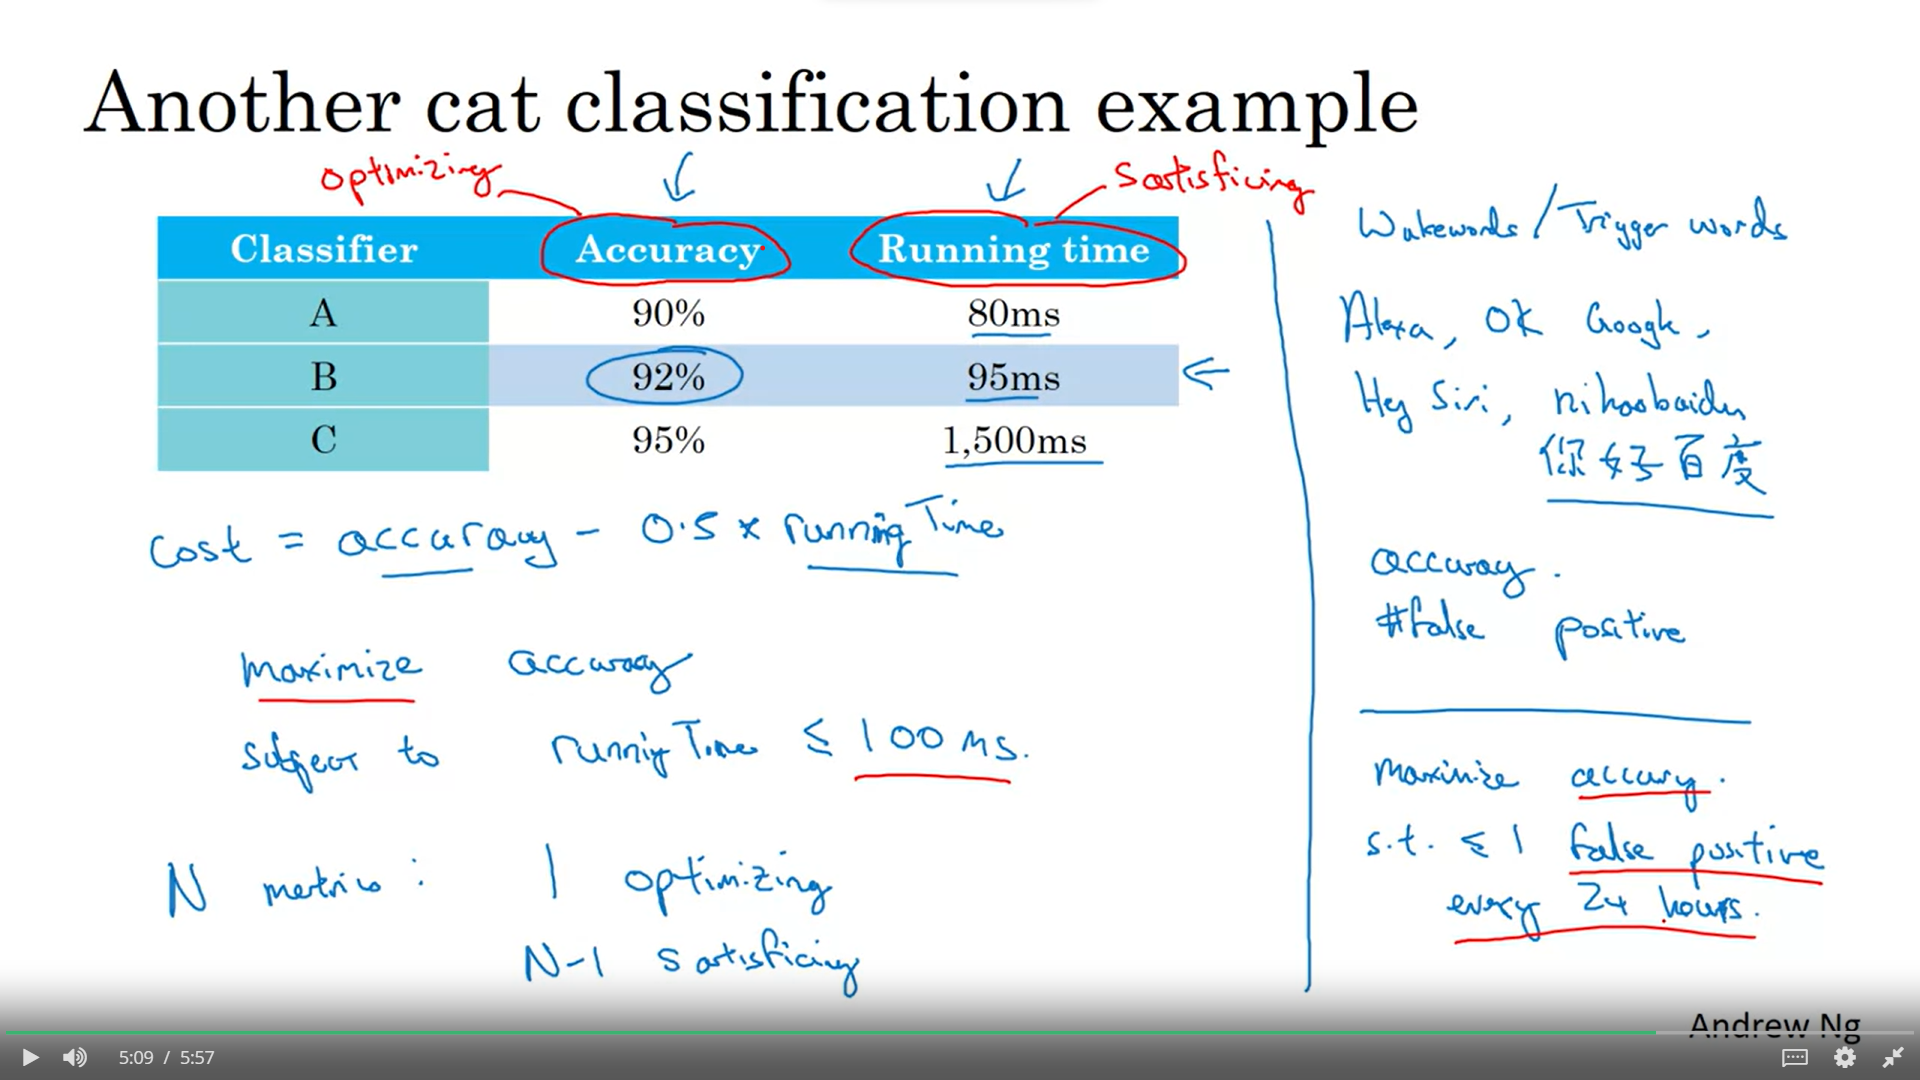 Another cat classification example
optimizing
satisficing
Classifier Accuracy Running time
A 90% 80ms
B 92% 95ms
C 95% 1,500ms
cost = accuracy - 0.5 * running Time
maximize accuracy
subject to running Time ≤ 100 ms.
N metrics: 1 optimizing
N-1 satisficing
Wakewords / Trigger words
Alexa, OK Google,
Hey Siri, nihaobaidu
你好百度
accuracy.
#false positive
maximize accuracy.
s.t. ≤ 1 false positive
every 24 hours.
Andrew Ng
5:09 / 5:57